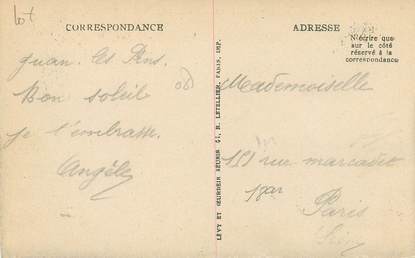 lot
CORRESPONDANCE
Juan. les Pins.
Bon soleil
je t'embrasse
Angèle
06
LÉVY ET NEURDEIN RÉUNIS 44, R. LETELLIER, PARIS, IMP.
ADRESSE
N'écrire que
sur le côté
réservé à la
correspondance
Mademoiselle
151 rue marcadet
Paris